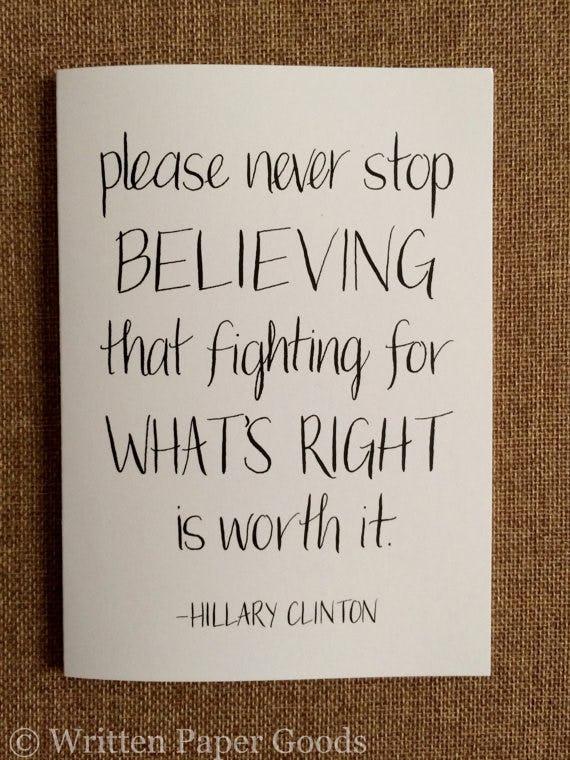 please never stop
BELIEVING
that fighting for
WHAT'S RIGHT
is worth it.
-HILLARY CLINTON
© Written Paper Goods